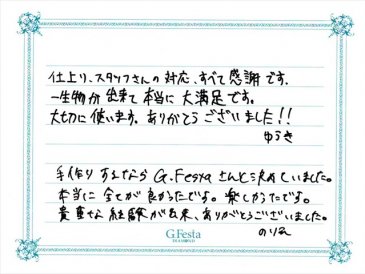 仕上り、スタッフさんの対応、すべて感謝です。
一生物が出来て本当に大満足です。
大切に使います。ありがとうございました!!
ゆうき
手作りするなら G.Festaさんと決めていました。
本当に全てが良かったです。楽しかったです。
貴重な経験が出来、ありがとうございました。
のりえ
G.Festa